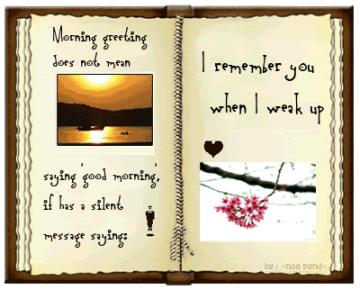 Morning greeting
does not mean
saying 'good morning',
if has a silent
message saying:
I remember you
when I weak up
by : ~noo pond~